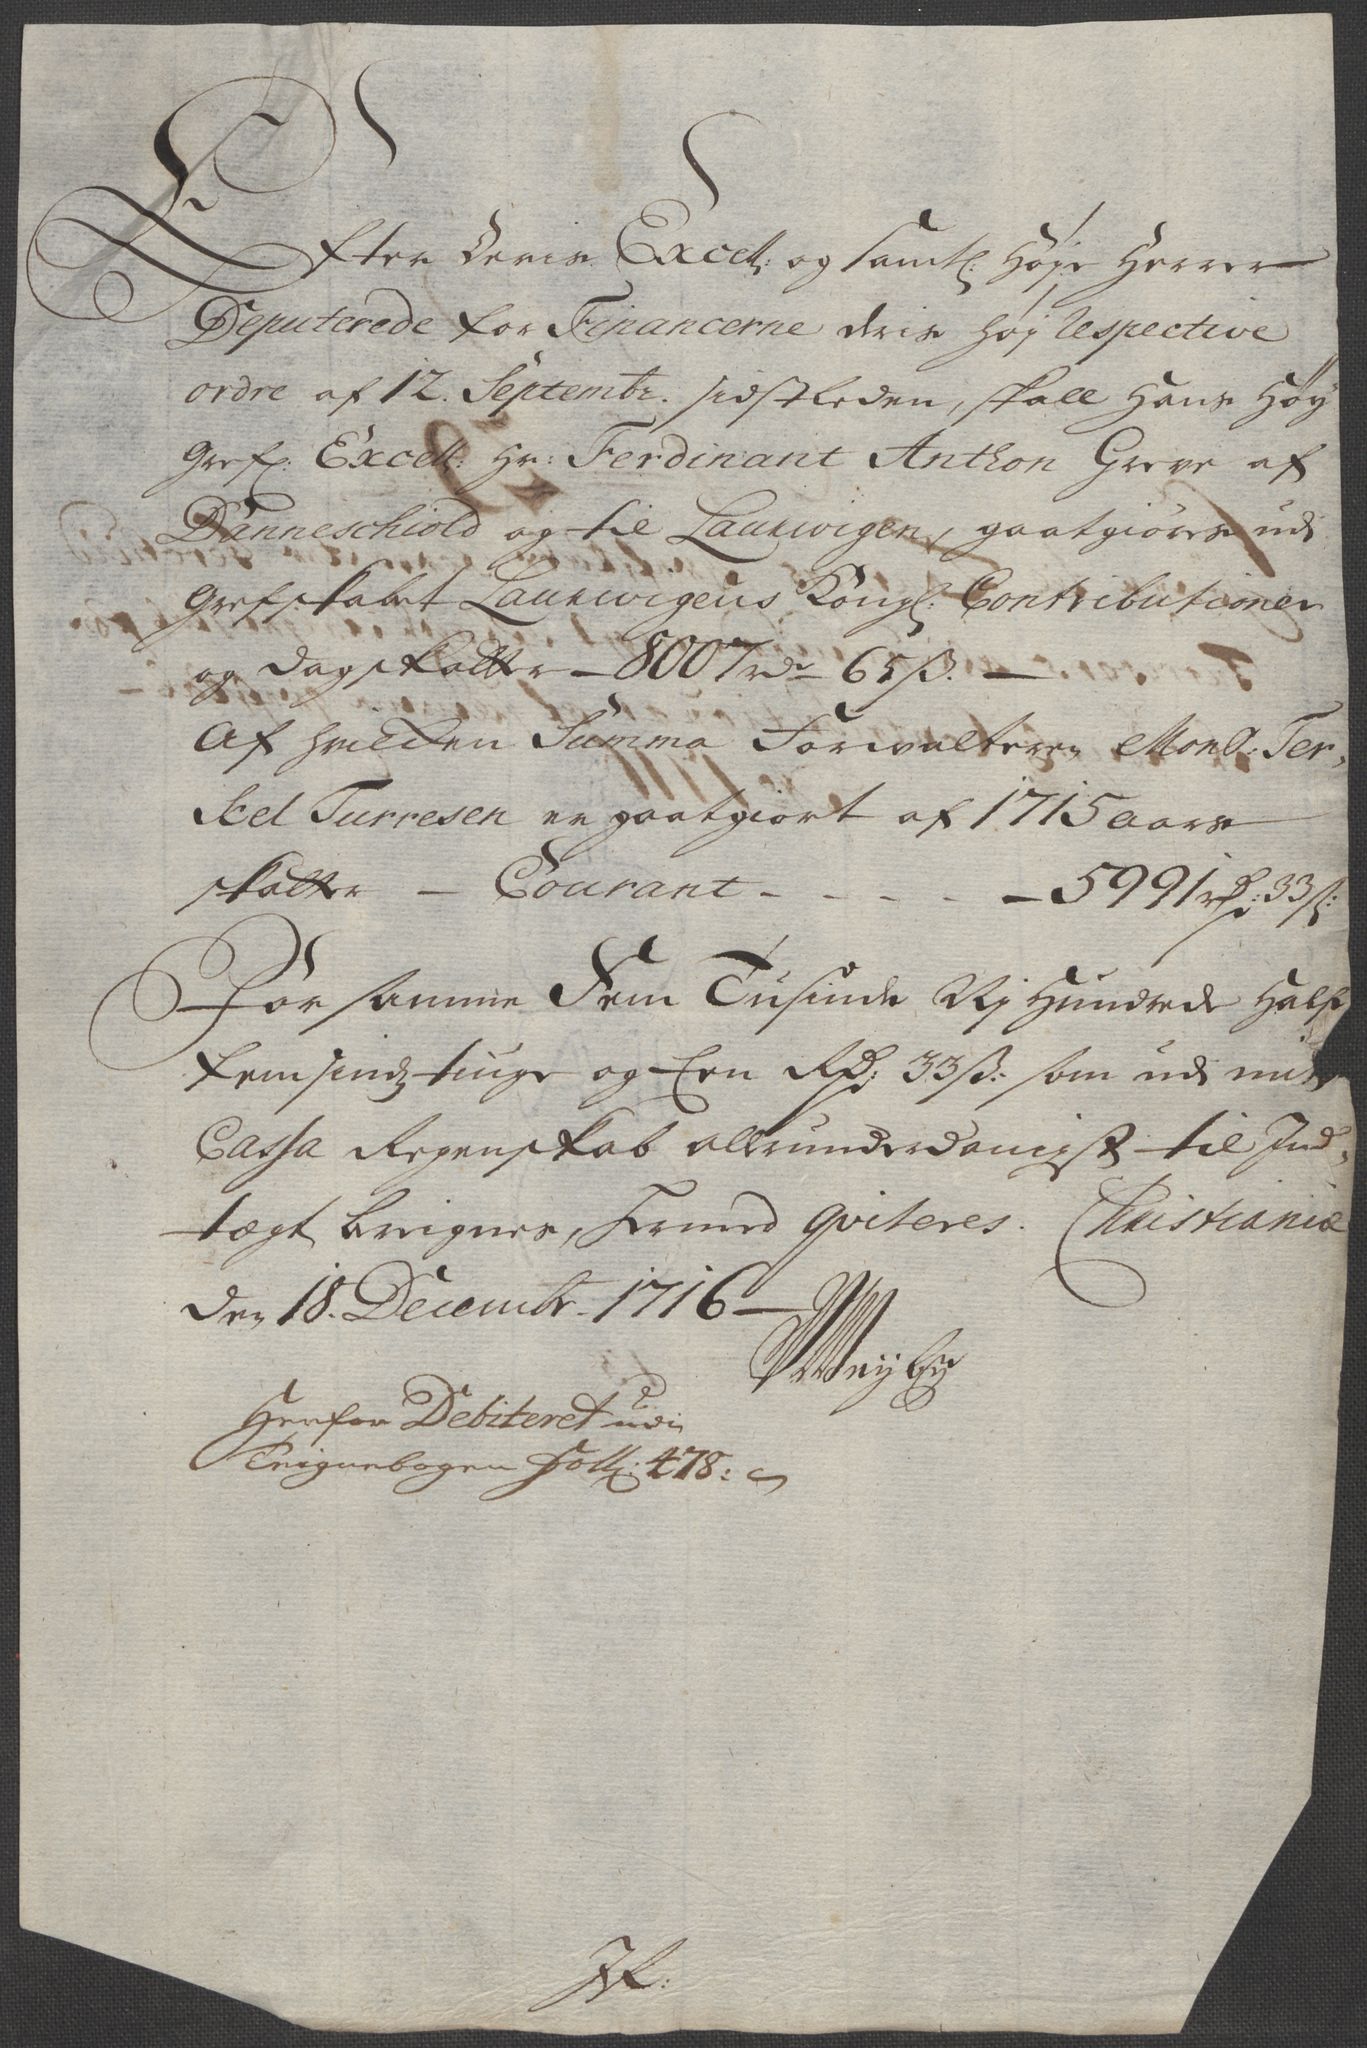 Efter deris Excell: og samtl: Høje Herrer
Deputerede for Financerne deris høj respective
ordre af 12. Septembr. sidstleden, skall Hans Høy
Grefl: Excell: Hr: Ferdinant Anthon Greve af
Danneschiold og til Laurwigen, gaatgiøres udi
Grefskabet Laurwigens Kongl: Contributioner
og dagskatter – 8007 rdr 65 ß. –
Af hvilcken Summa Forvalteren Mons: Ter-
kel Turresen er gaatgiort af 1715 aars
skatter – Courant - - - - – 5991 rd: 33 ß:
For samme Fem Tusinde Nj Hundrede Half
femsindztiuge og Een Rd: 33 ß: som udi mit
Cassa Regenskab allerunderdanigst til Ind-
tægt beregnes, hermed qviteres. Christiania
den 18. Decembr. 1716 –
Herfor Debiteret udi
Teignebogen Foll: 478: